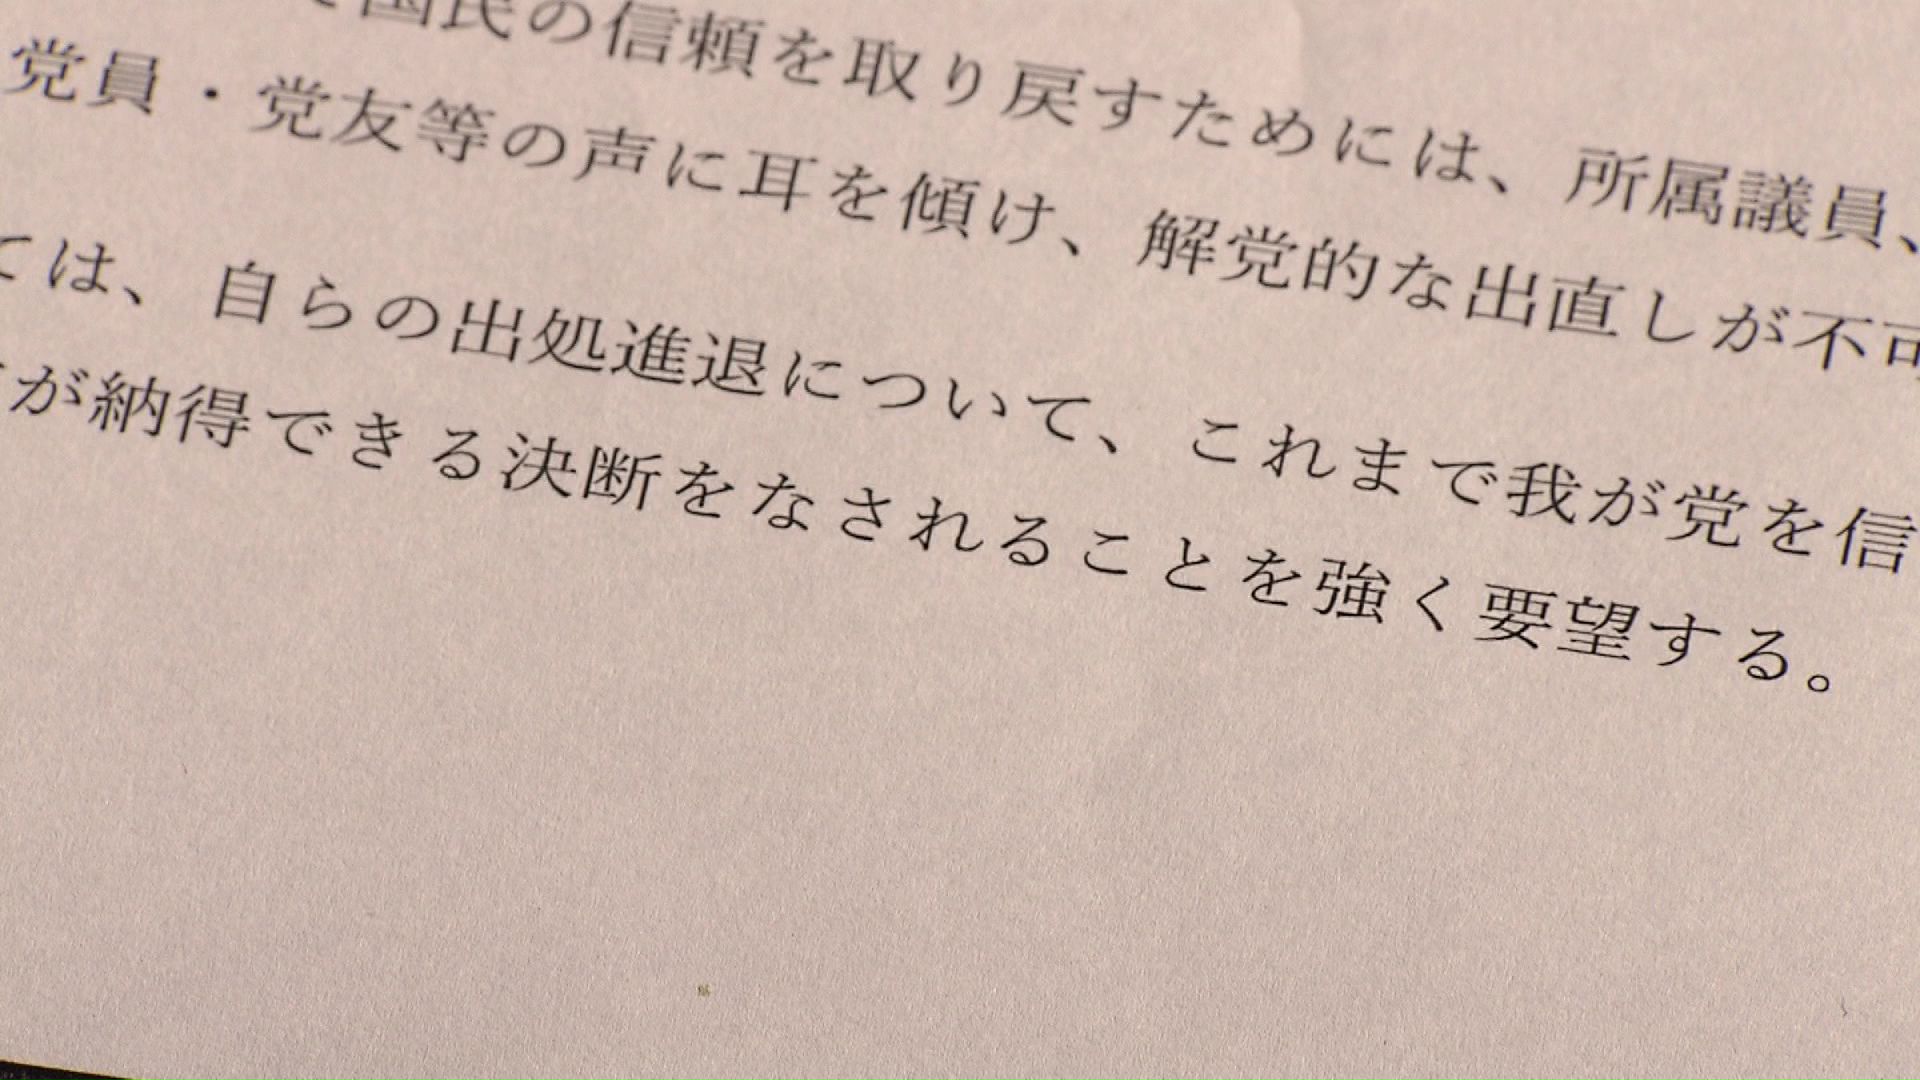 て国民の信頼を取り戻すためには、所属議員、
党員・党友等の声に耳を傾け、解党的な出直しが不可
ては、自らの出処進退について、これまで我が党を信
が納得できる決断をなされることを強く要望する。